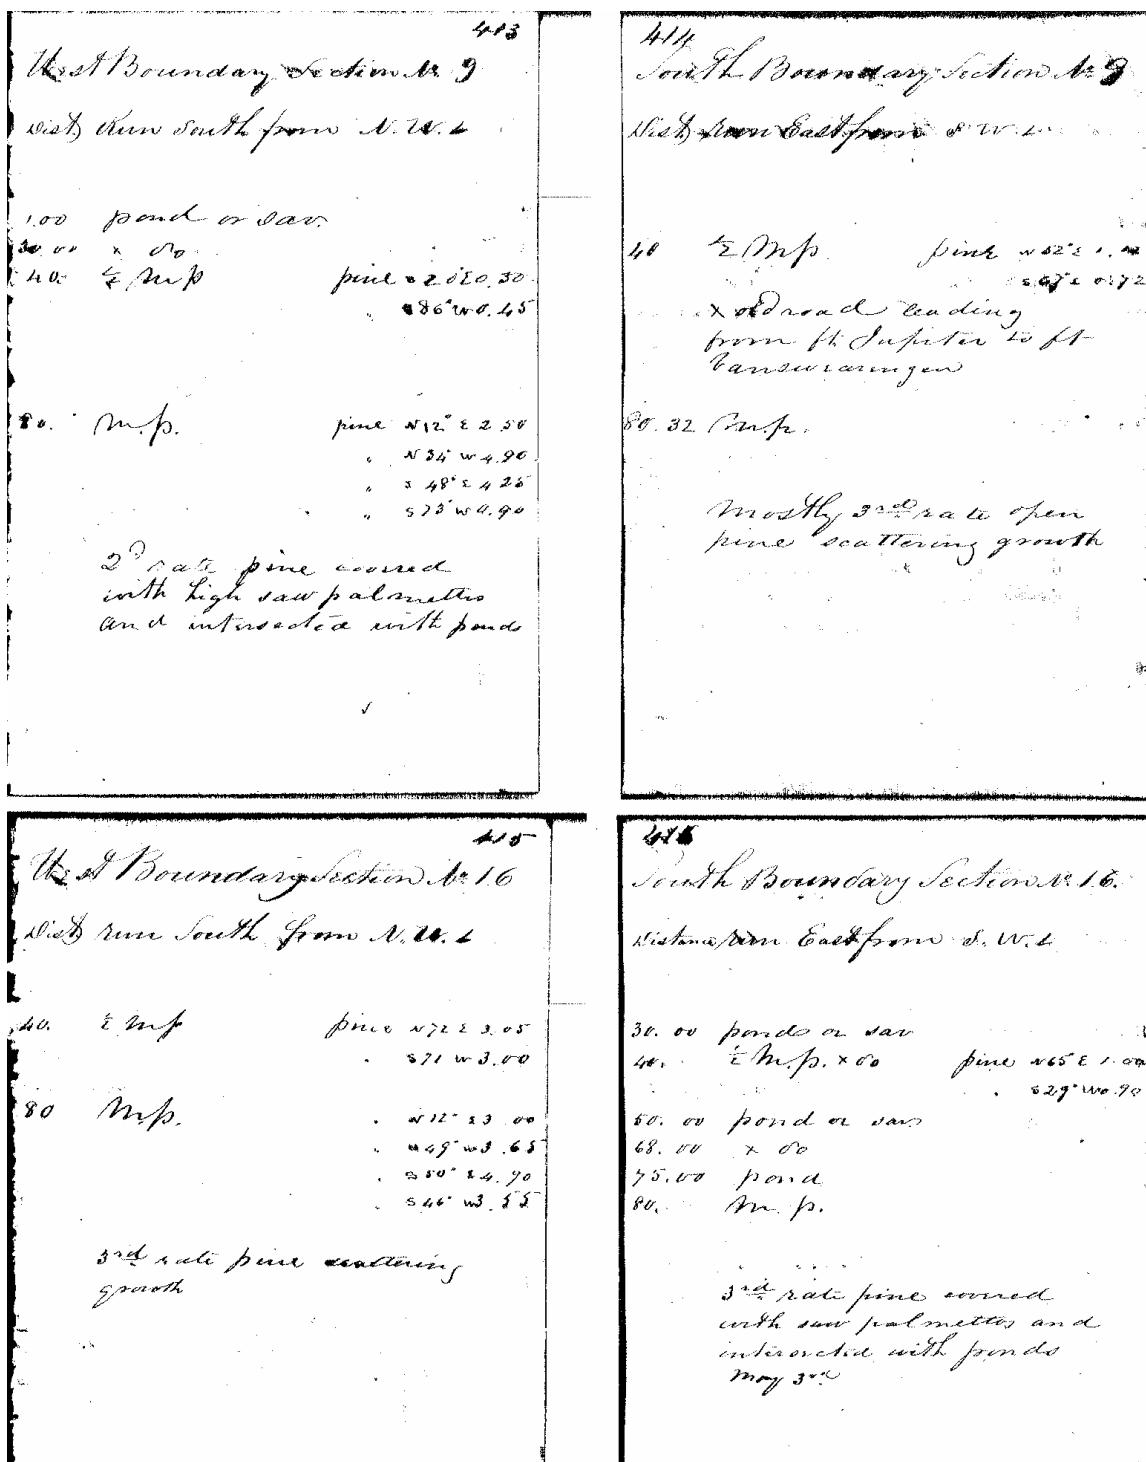 413
West Boundary Section № 9
Dist Run South from N.W.
1.00 pond or sav.
30.00 x do
40. ½ M p pine 0.30
" 86° W 0.45
80. M.p. pine N 12° E 2.50
" N 34° W 4.90
" S 48° E 4 25
" S 73° W 4.90
2d rate pine covered
with high saw palmetto
and intersected with ponds
414
South Boundary Section № 9
Dist run East from S W
40 ½ M p. pine
x old road leading
from ft Jupiter to ft
Vanswearingen
80.32 M.p.
Mostly 3rd rate open
pine scattering growth
415
West Boundary Section № 16
Dist run South from N.W.
40. ½ M p pine N 72 E 3.05
" S 71 W 3.00
80 M.p. " N 12° E 3 00
" 49° W 3.65
" S 50° E 4.90
" S 46° W 3.55
3rd rate pine scattering
growth
416
South Boundary Section № 16.
Distance run East from S.W.
30.00 ponds or sav
40. ½ M.p. x do pine N 65° E 1.00
" S 29° W 0.90
50.00 pond or sav
68.00 x do
75.00 pond
80. M.p.
3rd rate pine covered
with saw palmetto and
intersected with ponds
May 3rd